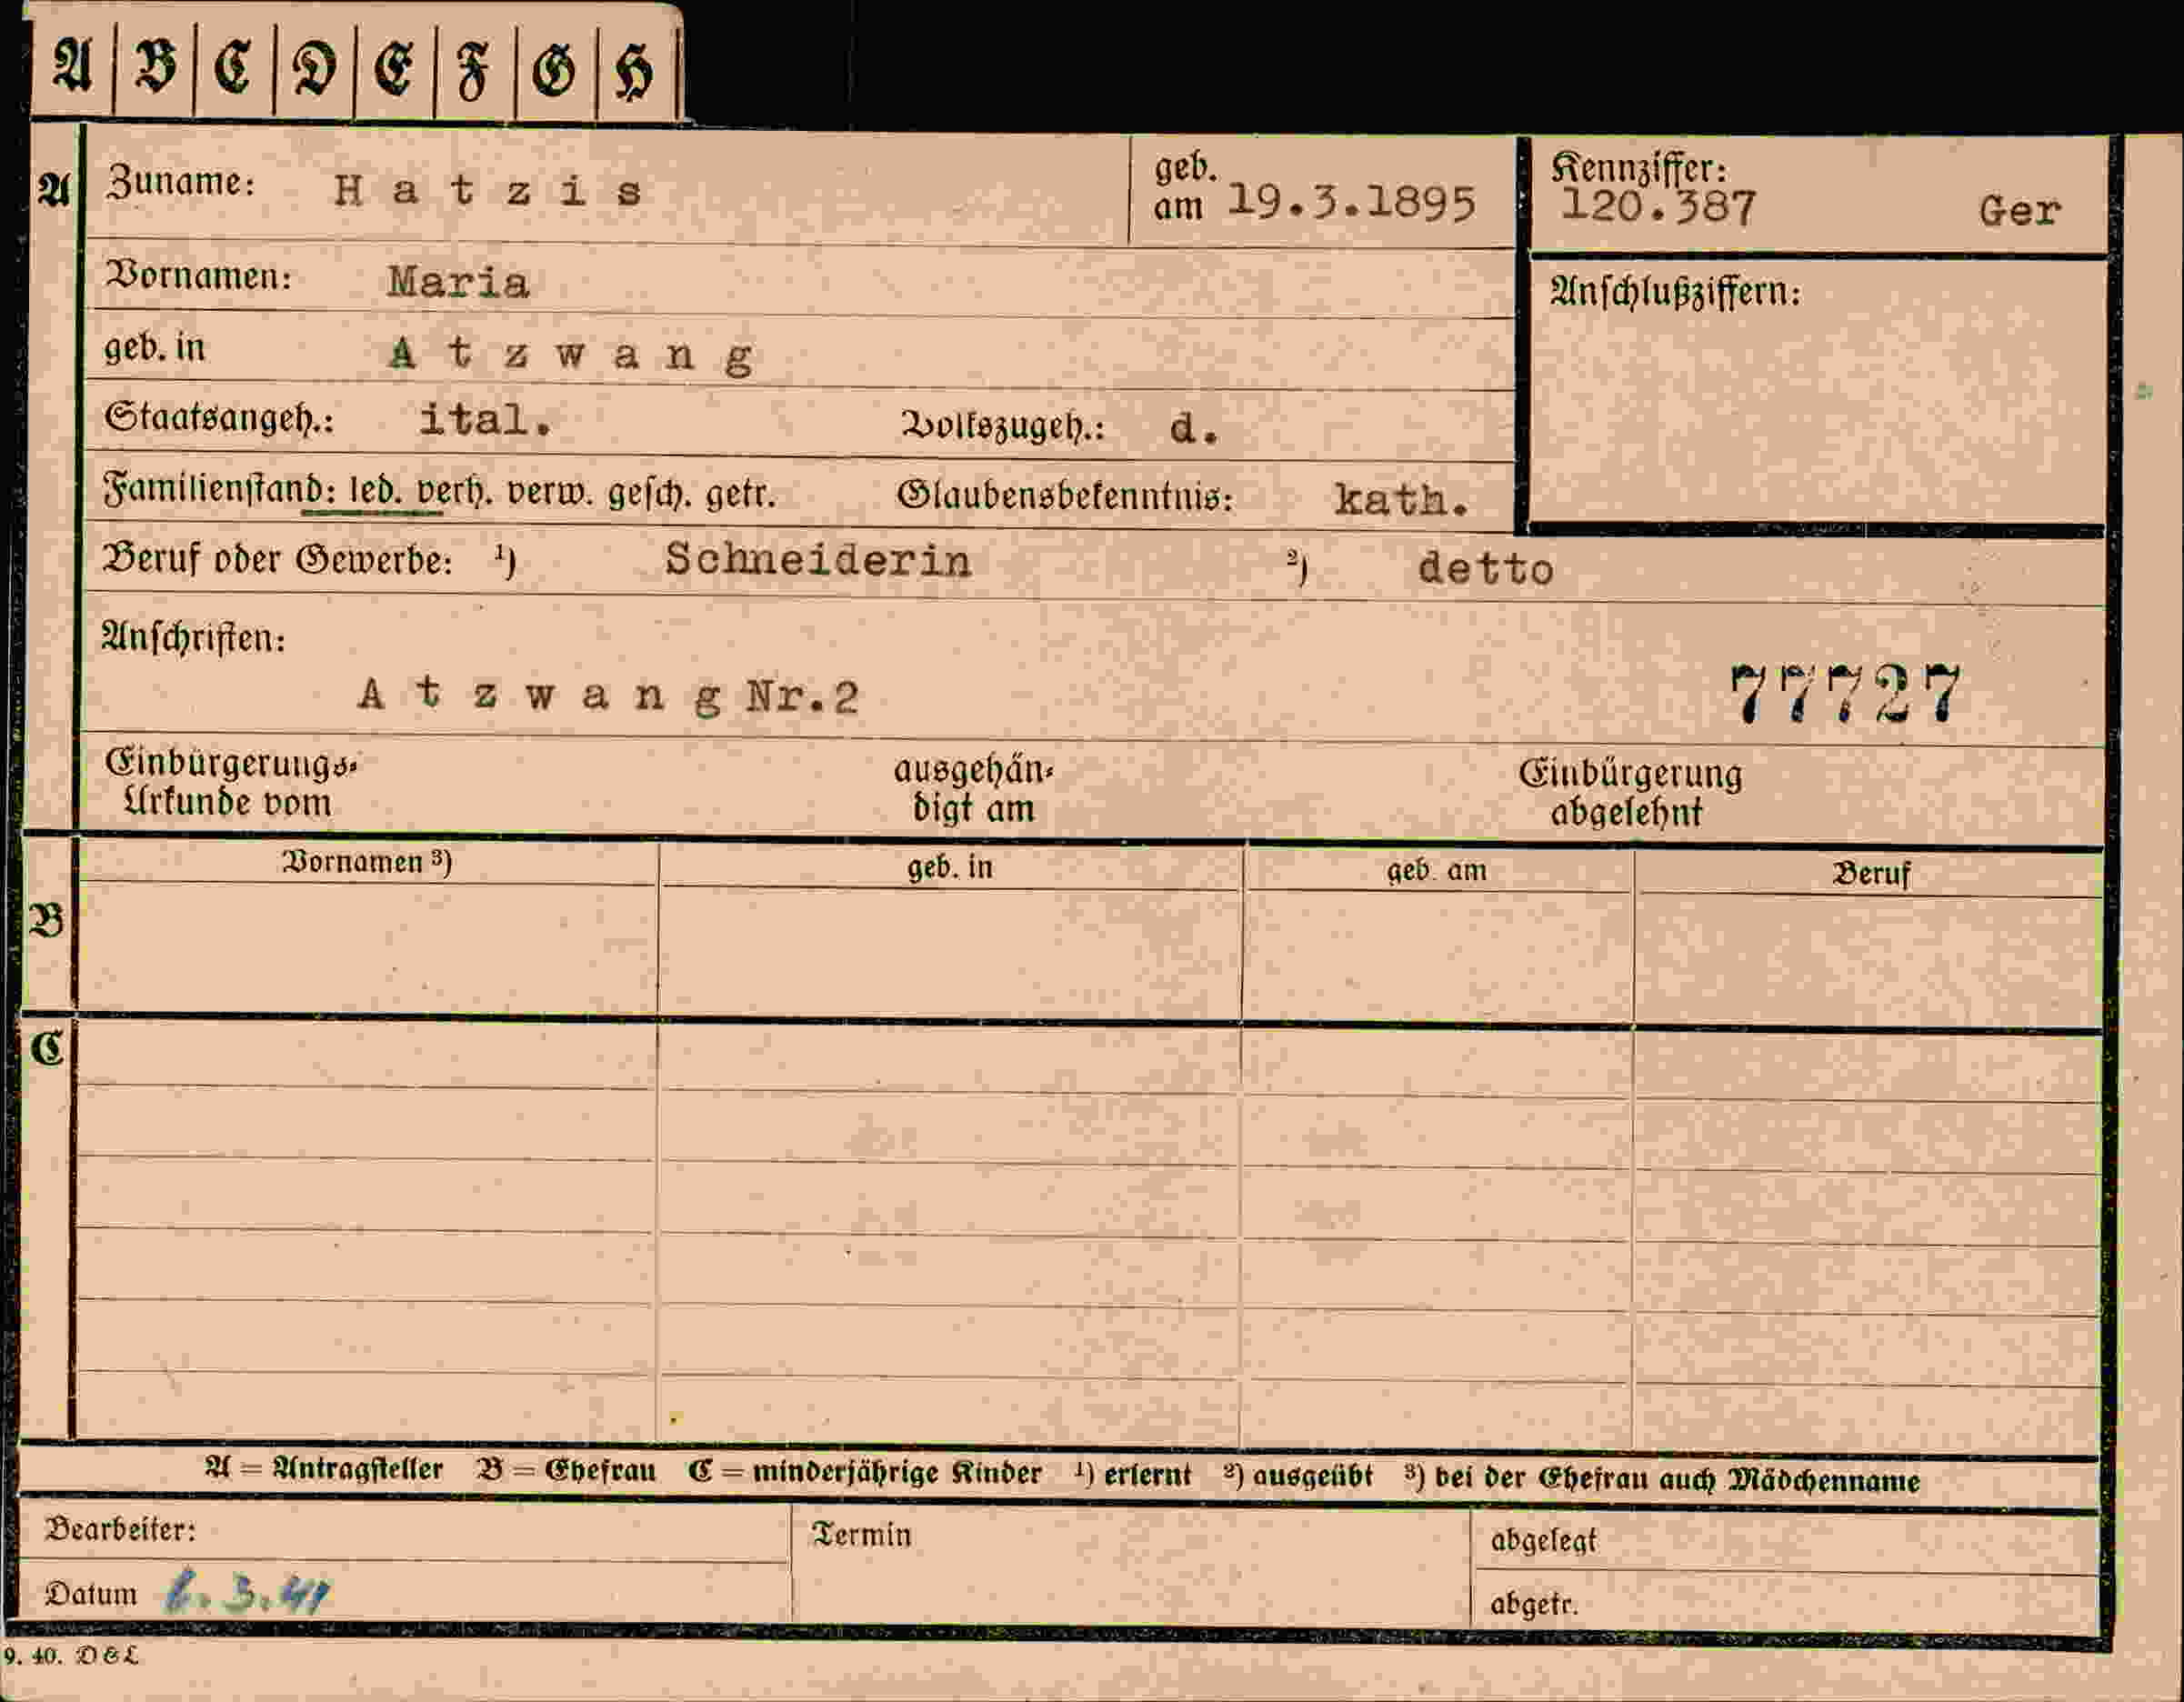 A B C D E F G H
A Zuname: Hatzis geb. am 19.3.1895 Kennziffer: 120.387 Ger
Vornamen: Maria Anschlußziffern:
geb. in Atzwang
Staatsangeh.: ital. Volkszugeh.: d.
Familienstand: led. verh. verw. gesch. getr. Glaubensbekenntnis: kath.
Beruf oder Gewerbe: ¹) Schneiderin ²) detto
Anschriften:
Atzwang Nr.2 77727
Einbürgerungs- ausgehän- Einbürgerung
Urkunde vom digt am abgelehnt
Vornamen ³) geb. in geb. am Beruf
B
C
A = Antragsteller B = Ehefrau C = minderjährige Kinder ¹) erlernt ²) ausgeübt ³) bei der Ehefrau auch Mädchenname
Bearbeiter: Termin abgelegt
Datum 6.3.41 abgetr.
9. 40. D & L